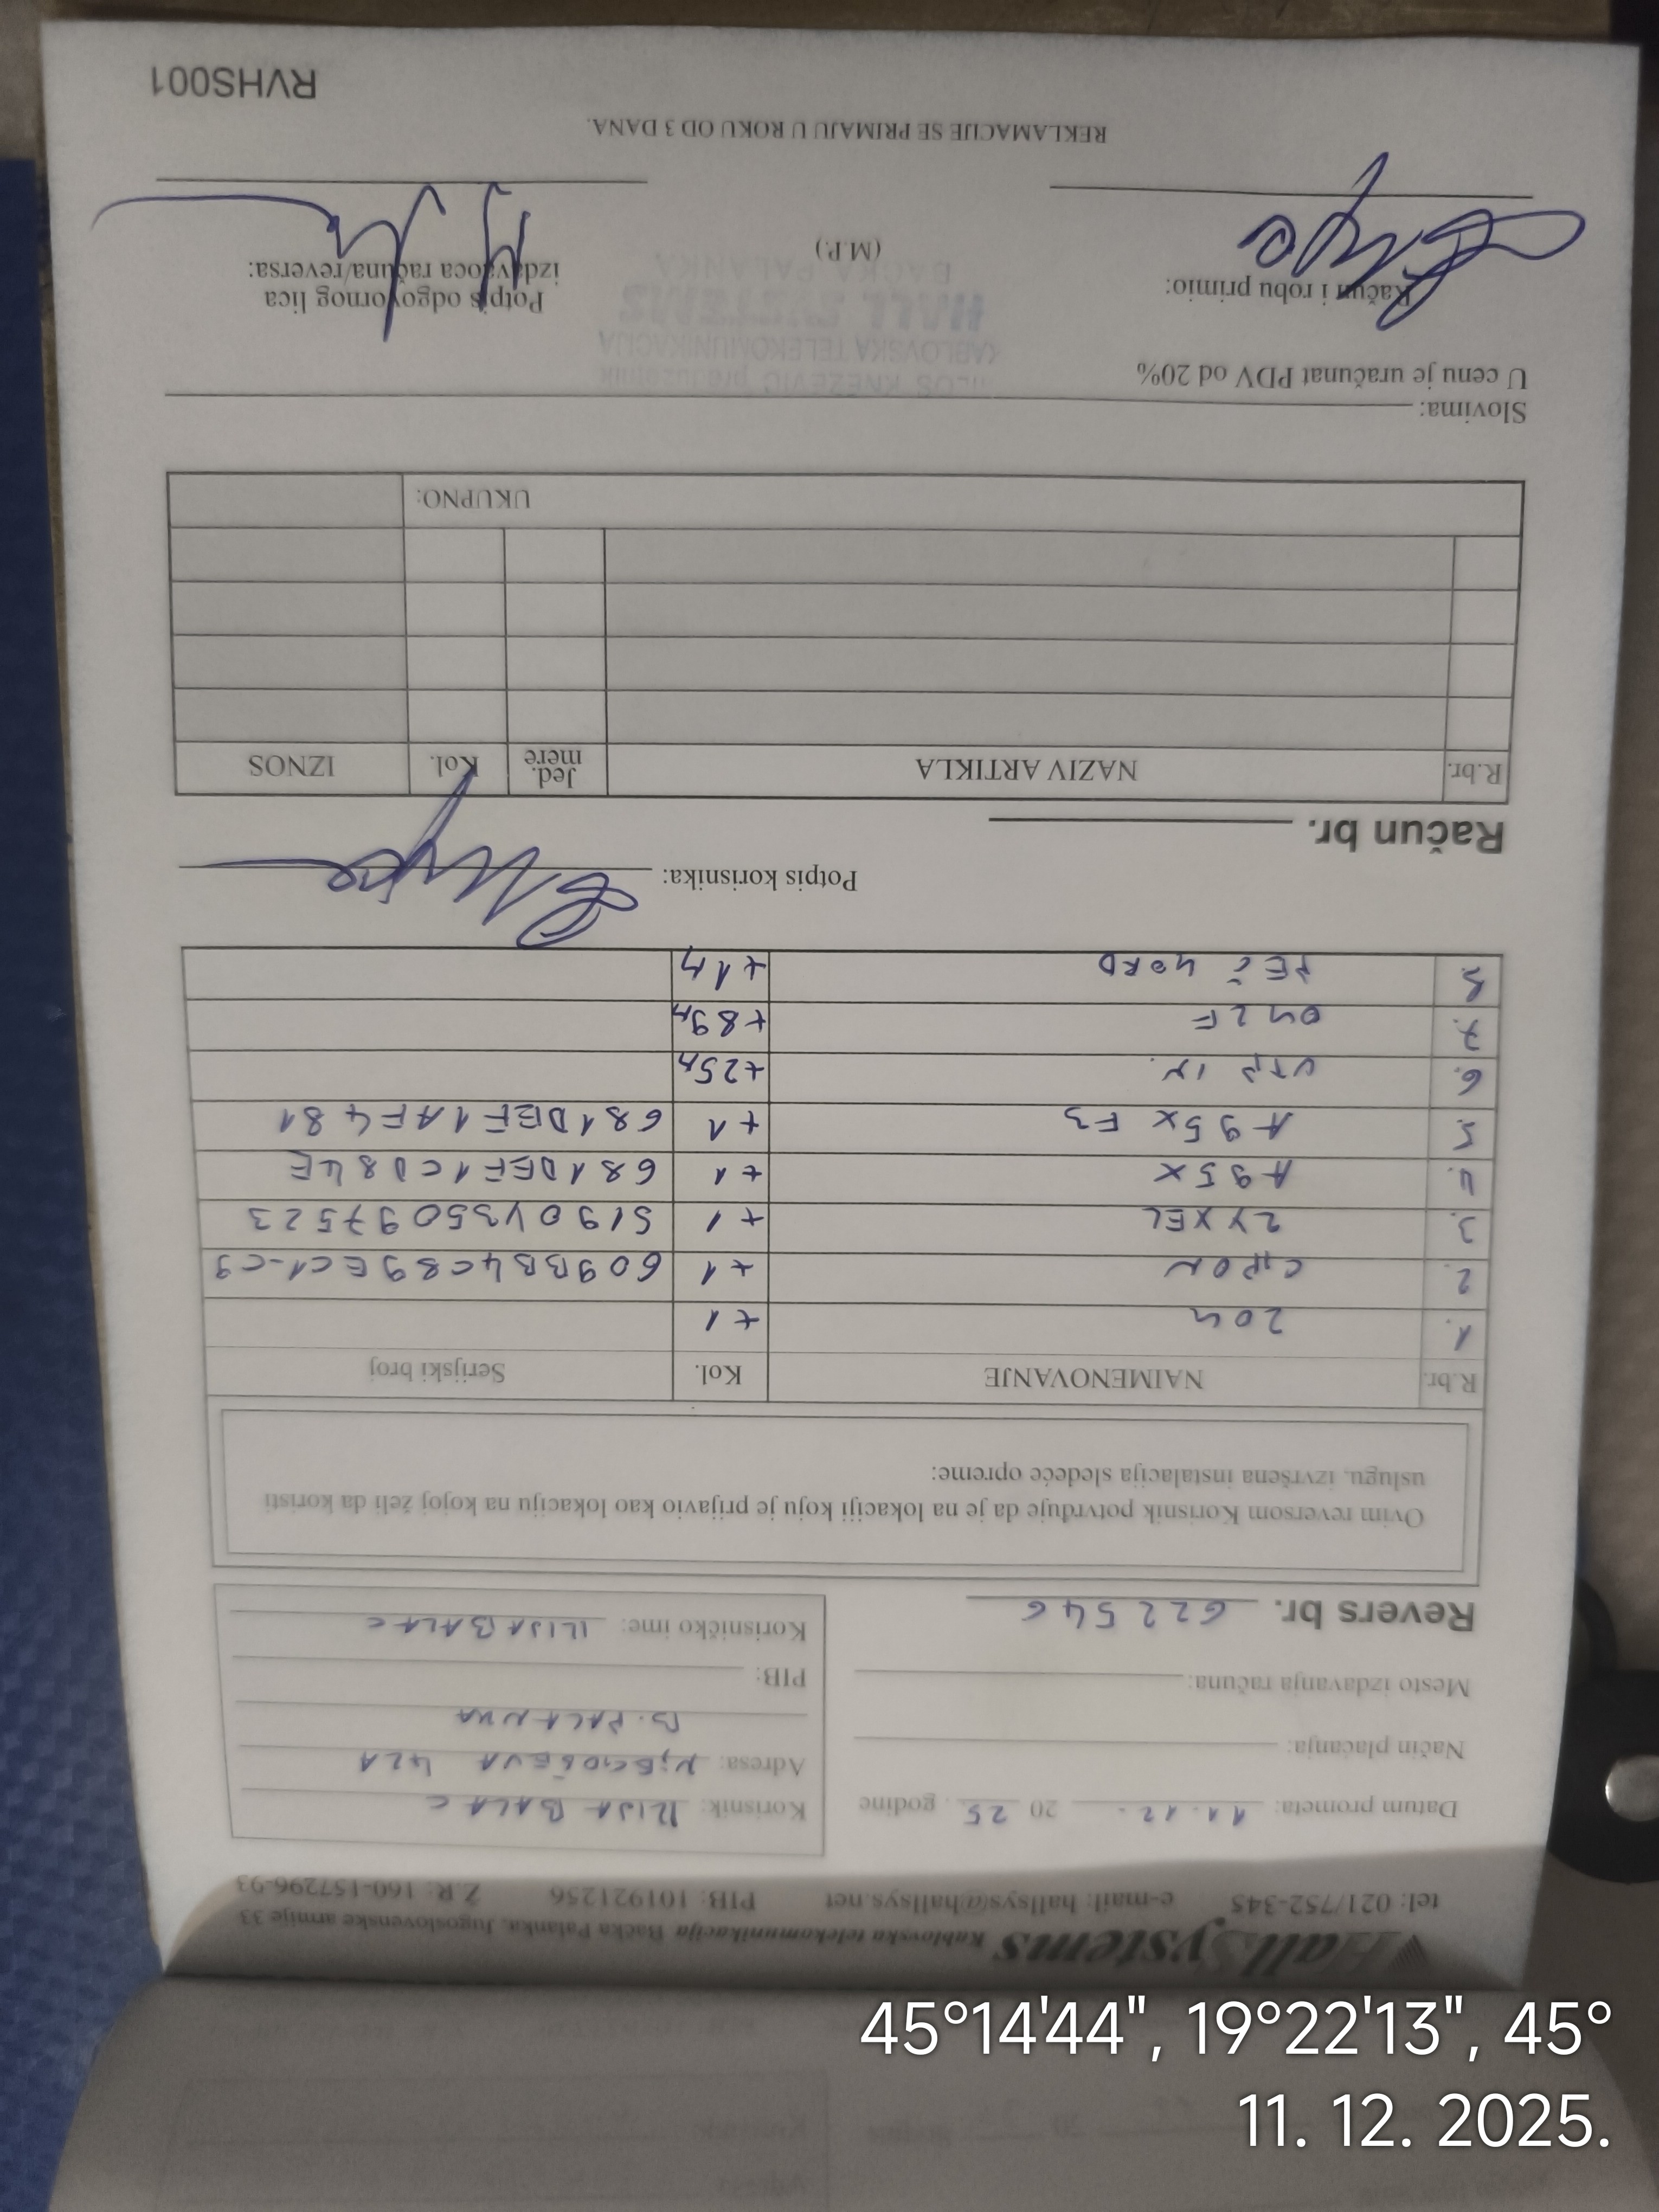 HallSystems Kablovska telekomunikacija Bačka Palanka, Jugoslovenske armije 33
tel: 021/752-345 e-mail: hallsys@hallsys.net PIB: 101921256 Ž.R: 160-157296-93
Datum prometa: 11.12. 2025. godine
Način plaćanja:
Mesto izdavanja računa:
Revers br. 622546
Korisnik: ILIJA BALAC
Adresa: 42A
B. PALANKA
PIB:
Korisničko ime: ILIJA BALAC
Ovim reversom Korisnik potvrđuje da je na lokaciji koju je prijavio kao lokaciju na kojoj želi da koristi
uslugu, izvršena instalacija sledeće opreme:
R.br. NAIMENOVANJE Kol. Serijski broj
1. +1
2. GPON +1 609BB4C89EC1-C9
3. ZYXEL +1 S190Y35097523
4. A95X +1 681DEF1CD84E
5. A95X F3 +1 681DEF1AF481
6. UTP +25M
7. +89M
8. +1M
Potpis korisnika:
Račun br.
R.br. NAZIV ARTIKLA Jed. mere Kol. IZNOS
UKUPNO:
Slovima:
U cenu je uračunat PDV od 20%
MILOŠ KNEŽEVIĆ preduzetnik
KABLOVSKA TELEKOMUNIKACIJA
HALL SYSTEMS
BAČKA PALANKA
Račun i robu primio:
(M.P.)
Potpis odgovornog lica
izdavaoca računa/reversa:
REKLAMACIJE SE PRIMAJU U ROKU OD 3 DANA.
RVHS001
45°14'44", 19°22'13", 45°
11. 12. 2025.